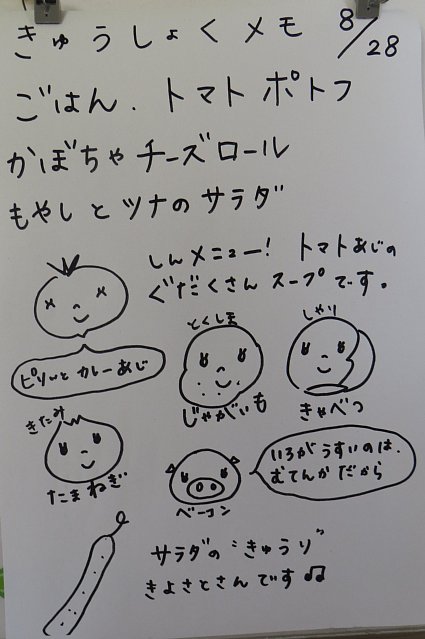 きゅうしょくメモ 8/28
ごはん．トマトポトフ
かぼちゃチーズロール
もやしとツナのサラダ
しんメニュー! トマトあじの
ぐだくさんスープです。
ピリッと カレーあじ
とくしま
じゃがいも
しゃり
きゃべつ
きたみ
たまねぎ
ベーコン
いろがうすいのは、
むてんかだから
サラダの“きゅうり”
きよさとさんです♫